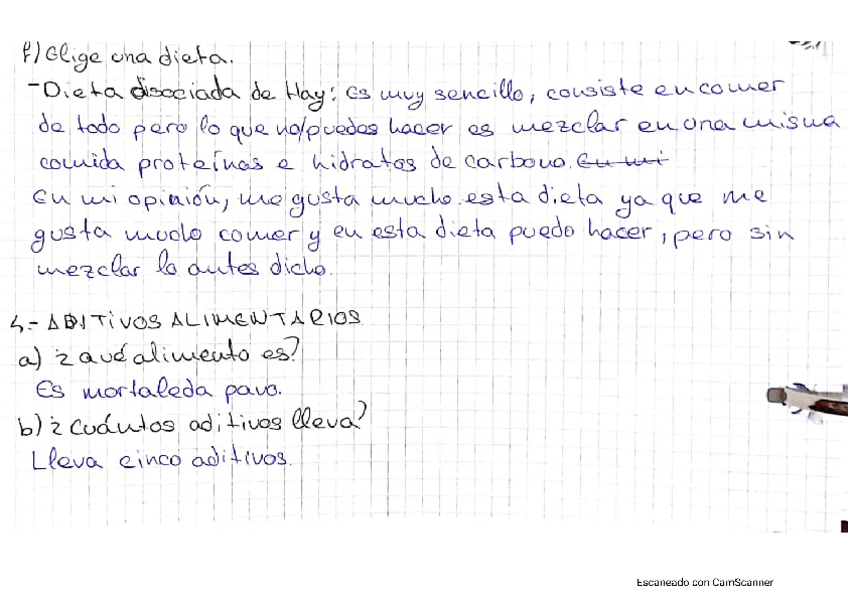 f) Elige una dieta.
-Dieta disociada de Hay: Es muy sencillo, consiste en comer
de todo pero lo que no puedes hacer es mezclar en una misma
comida proteínas e hidratos de carbono. En mi
En mi opinión, me gusta mucho esta dieta ya que me
gusta mucho comer y en esta dieta puedo hacer, pero sin
mezclar lo antes dicho.
4.- ADITIVOS ALIMENTARIOS
a) ¿Qué alimento es?
Es mortaleda pavo.
b) ¿Cuántos aditivos lleva?
Lleva cinco aditivos.
Escaneado con CamScanner